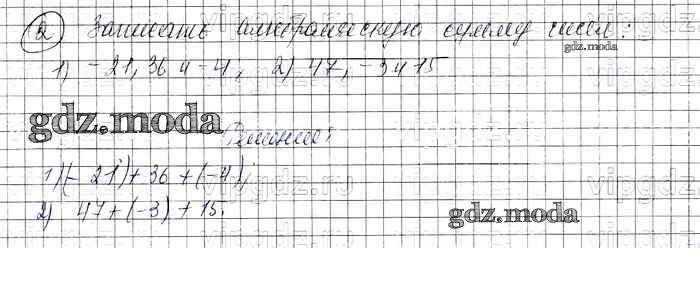 ② Записать алгебраическую сумму чисел:
gdz.moda
1) -21, 36 и -4; 2) 47, -3 и 15
gdz.moda
Решение:
1) (-21) + 36 + (-4);
2) 47 + (-3) + 15.
gdz.moda
vipgdz.ru